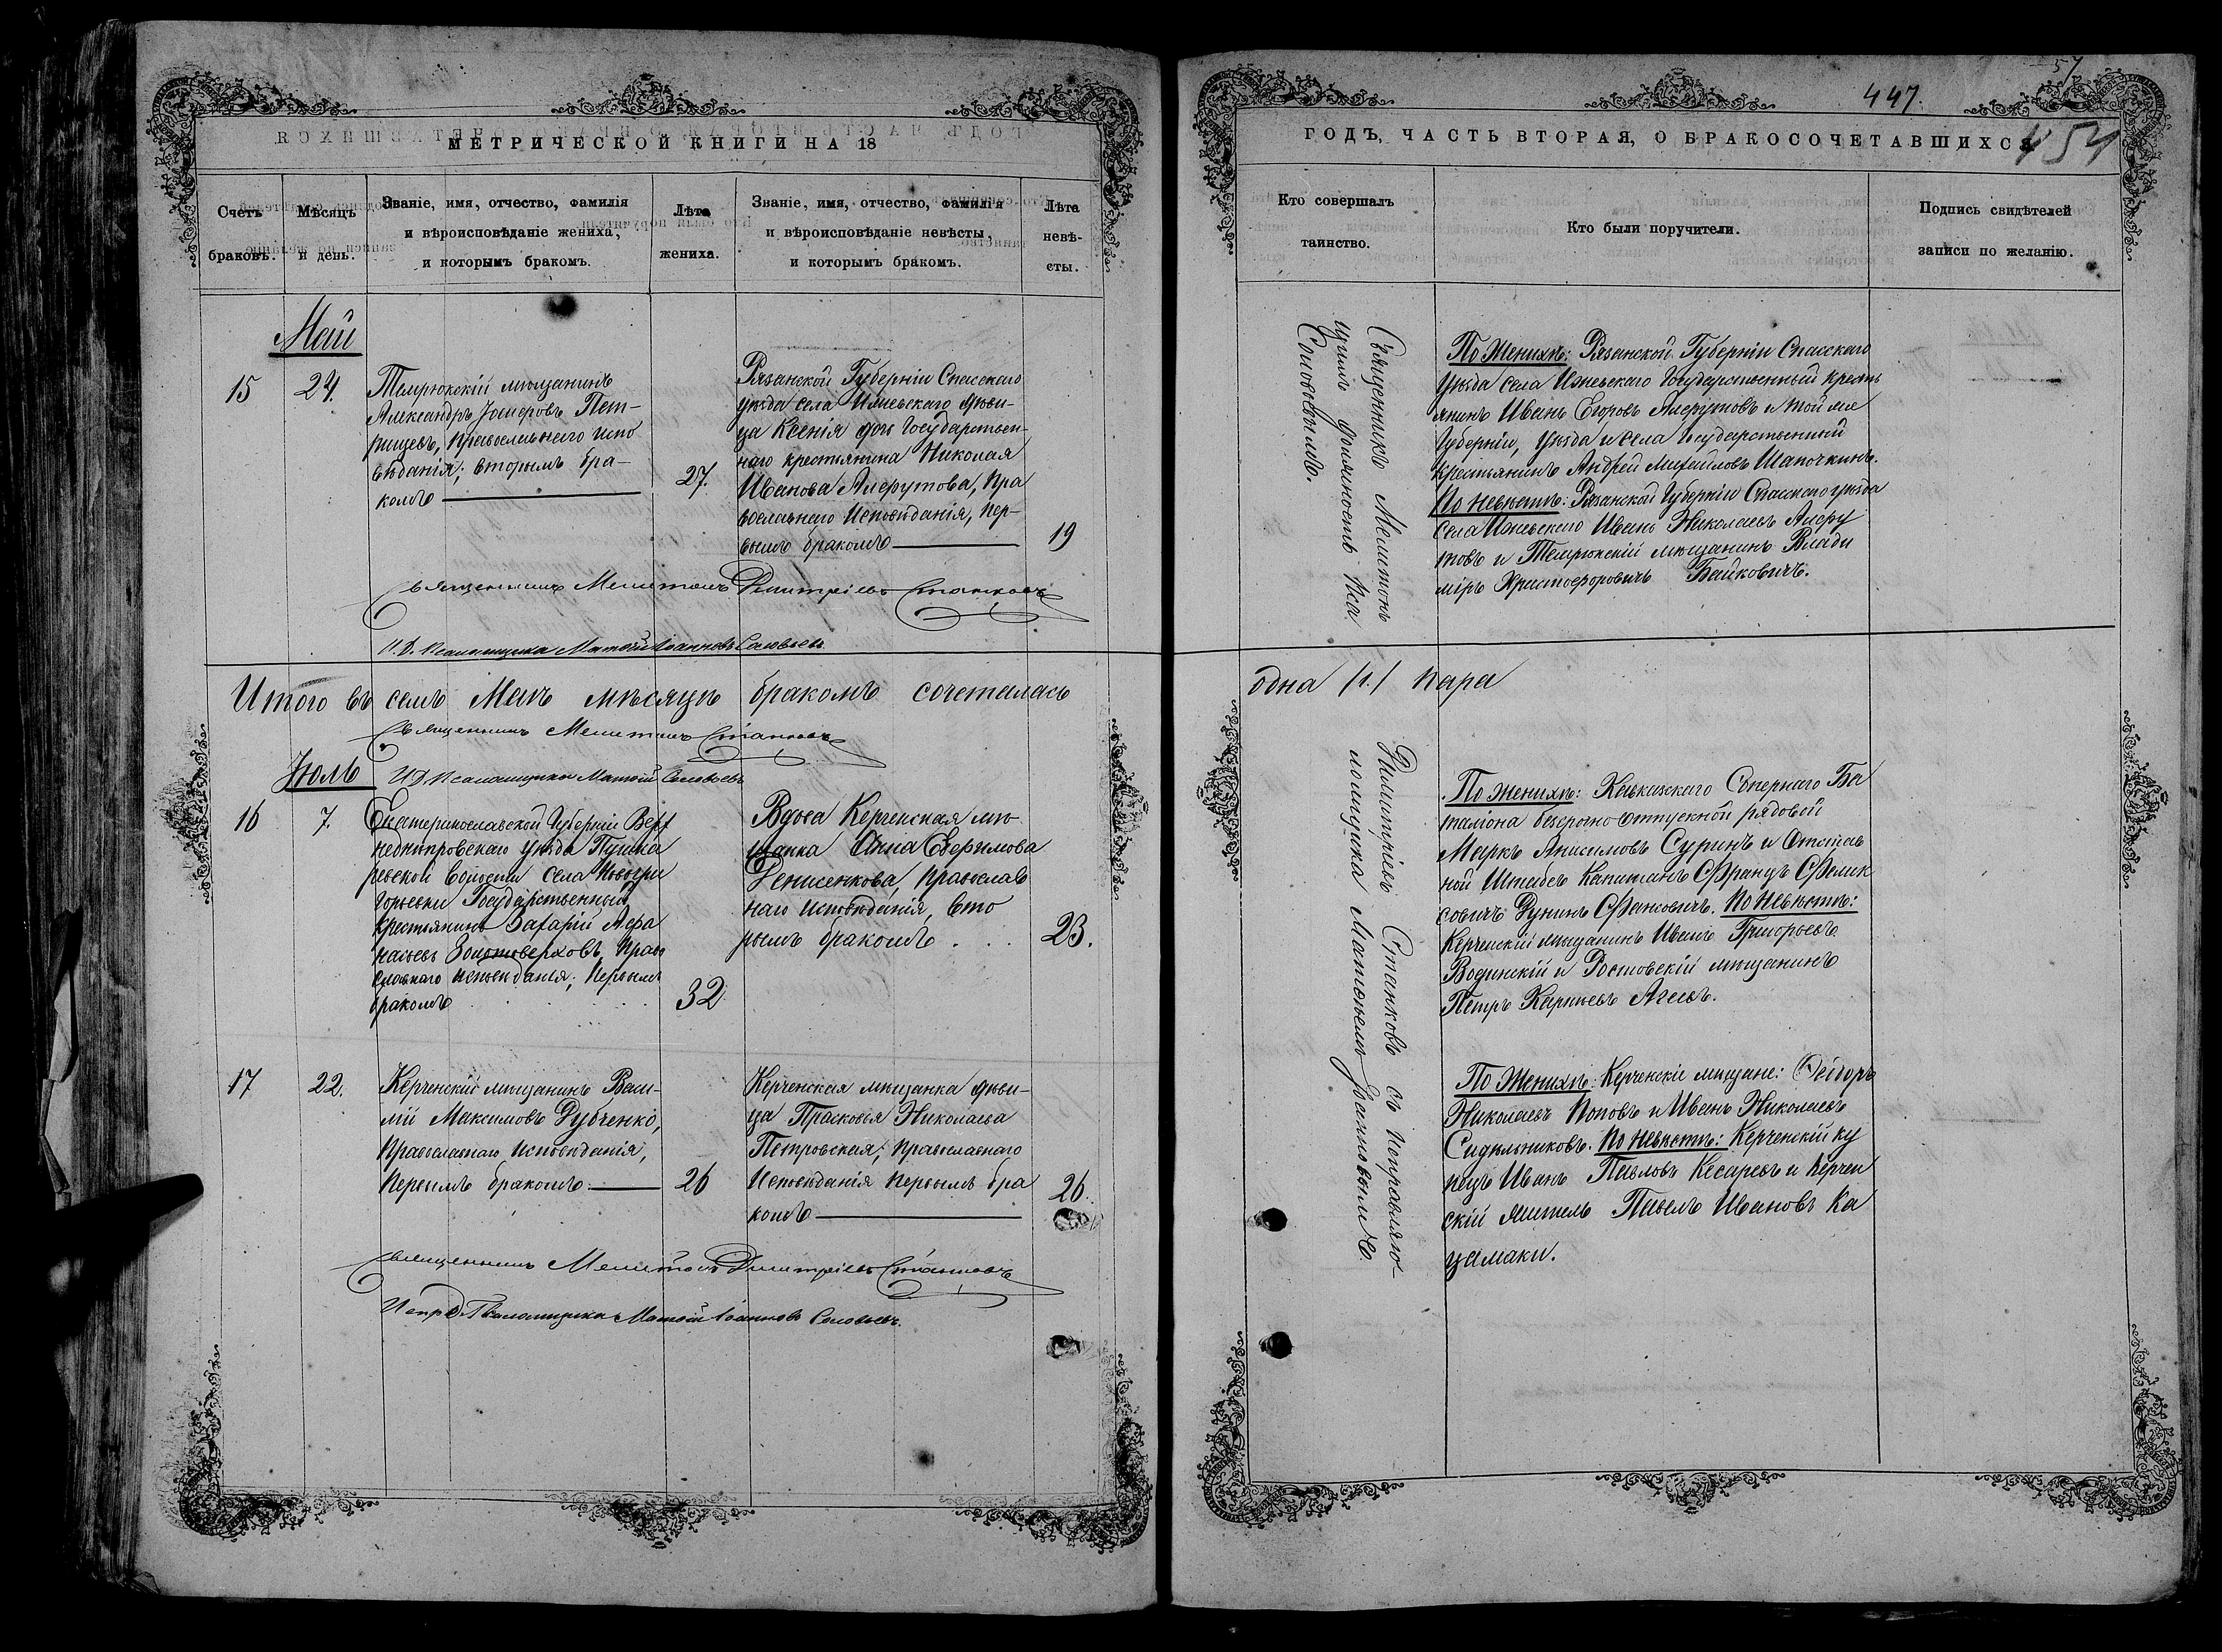 МЕТРИЧЕСКОЙ КНИГИ НА 18
Счетъ
браковъ.
Мѣсяцъ
и день.
Званіе, имя, отчество, фамилія
и вѣроисповѣданіе жениха,
и которымъ бракомъ.
Лѣта
жениха.
Званіе, имя, отчество, фамилія
и вѣроисповѣданіе невѣсты,
и которымъ бракомъ.
Лѣта
невѣ-
сты.
Май
15
24.
Темрюкскій мѣщанинъ
Александръ Пет-
рищевъ, православнаго испо
вѣданія; вторымъ бра-
комъ
27.
Рязанской Губерніи Спасскаго
уѣзда села Ижевскаго дѣви-
ца Ксенія дочь Государствен-
наго крестьянина Николая
Иванова Алфутова, пра
вославнаго исповѣданія, пер-
вымъ бракомъ
19
Священникъ Мелитонъ Димитріевъ Станковъ
И.Д. псаломщика Матѳій Іоанновъ Соловьевъ
Итого въ семъ Маѣ мѣсяцѣ бракомъ сочеталась
Священникъ Мелитонъ Станковъ
Іюль
И.Д. Псаломщика Матѳій Соловьевъ
16
7.
Екатеринославской Губерніи Верх
неднѣпровскаго уѣзда Пушка
ревской волости села Новогри
горьевки Государственный
крестьянинъ Захарій Афа
насьевъ Золотоверховъ, право
славнаго исповѣданія; первымъ
бракомъ
32
Вдова Керченская мѣ
щанка Анна Ефимова
Денисенкова, православ
наго исповѣданія, вто
рымъ бракомъ
23.
17
22.
Керченскій мѣщанинъ Васи-
лій Максимовъ Дубченко,
православнаго исповѣданія,
первымъ бракомъ
26
Керченская мѣщанка дѣви-
ца Прасковья Николаева
Петровская, православнаго
исповѣданія первымъ бра
комъ
26.
Священникъ Мелитонъ Димитріевъ Станковъ
Испр. д. Псаломщика Матѳій Іоанновъ Соловьевъ.
57
447.
454
ГОДЪ, ЧАСТЬ ВТОРАЯ, О БРАКОСОЧЕТАВШИХСЯ
Кто совершалъ
таинство.
Кто были поручители.
Подпись свидѣтелей
записи по желанію.
Священникъ Мелитонъ
щимъ должность пса
Соловьевымъ.
По женихѣ: Рязанской Губерніи Спасскаго
уѣзда села Ижевскаго Государственный кресть
янинъ Иванъ Егоровъ Алфутовъ и той же
Губерніи, уѣзда и села Государственный
крестьянинъ Андрей Михайловъ Шапочкинъ.
По невѣстѣ: Рязанской Губерніи Спасскаго уѣзда
села Ижевскаго Иванъ Николаевъ Алфу
товъ и Темрюкскій мѣщанинъ Влади
міръ Христофоровичъ Байковичъ.
одна /1./ пара
Димитріевъ Станковъ съ исправляю-
ломщика Матѳѣемъ Іоанновымъ
По женихѣ: Кавказскаго Сапернаго Ба
таліона безсрочно-отпускной рядовой
Маркъ Анисимовъ Суринъ и отстав
ной Штабсъ Капитанъ Францъ Фелик
совичъ Дунинъ Сфанковичъ. По невѣстѣ:
Керченскій мѣщанинъ Иванъ Григорьевъ
Водинскій и Ростовскій мѣщанинъ
Петръ Карпьевъ Агеевъ.
По женихѣ: Керченскіе мѣщане: Ѳеодоръ
Николаевъ Поповъ и Иванъ Николаевъ
Сидѣльниковъ. По невѣстѣ: Керченскій ку
пецъ Иванъ Павловъ Кесаревъ и Керчен
скій житель Павелъ Ивановъ Ка
цамаки.